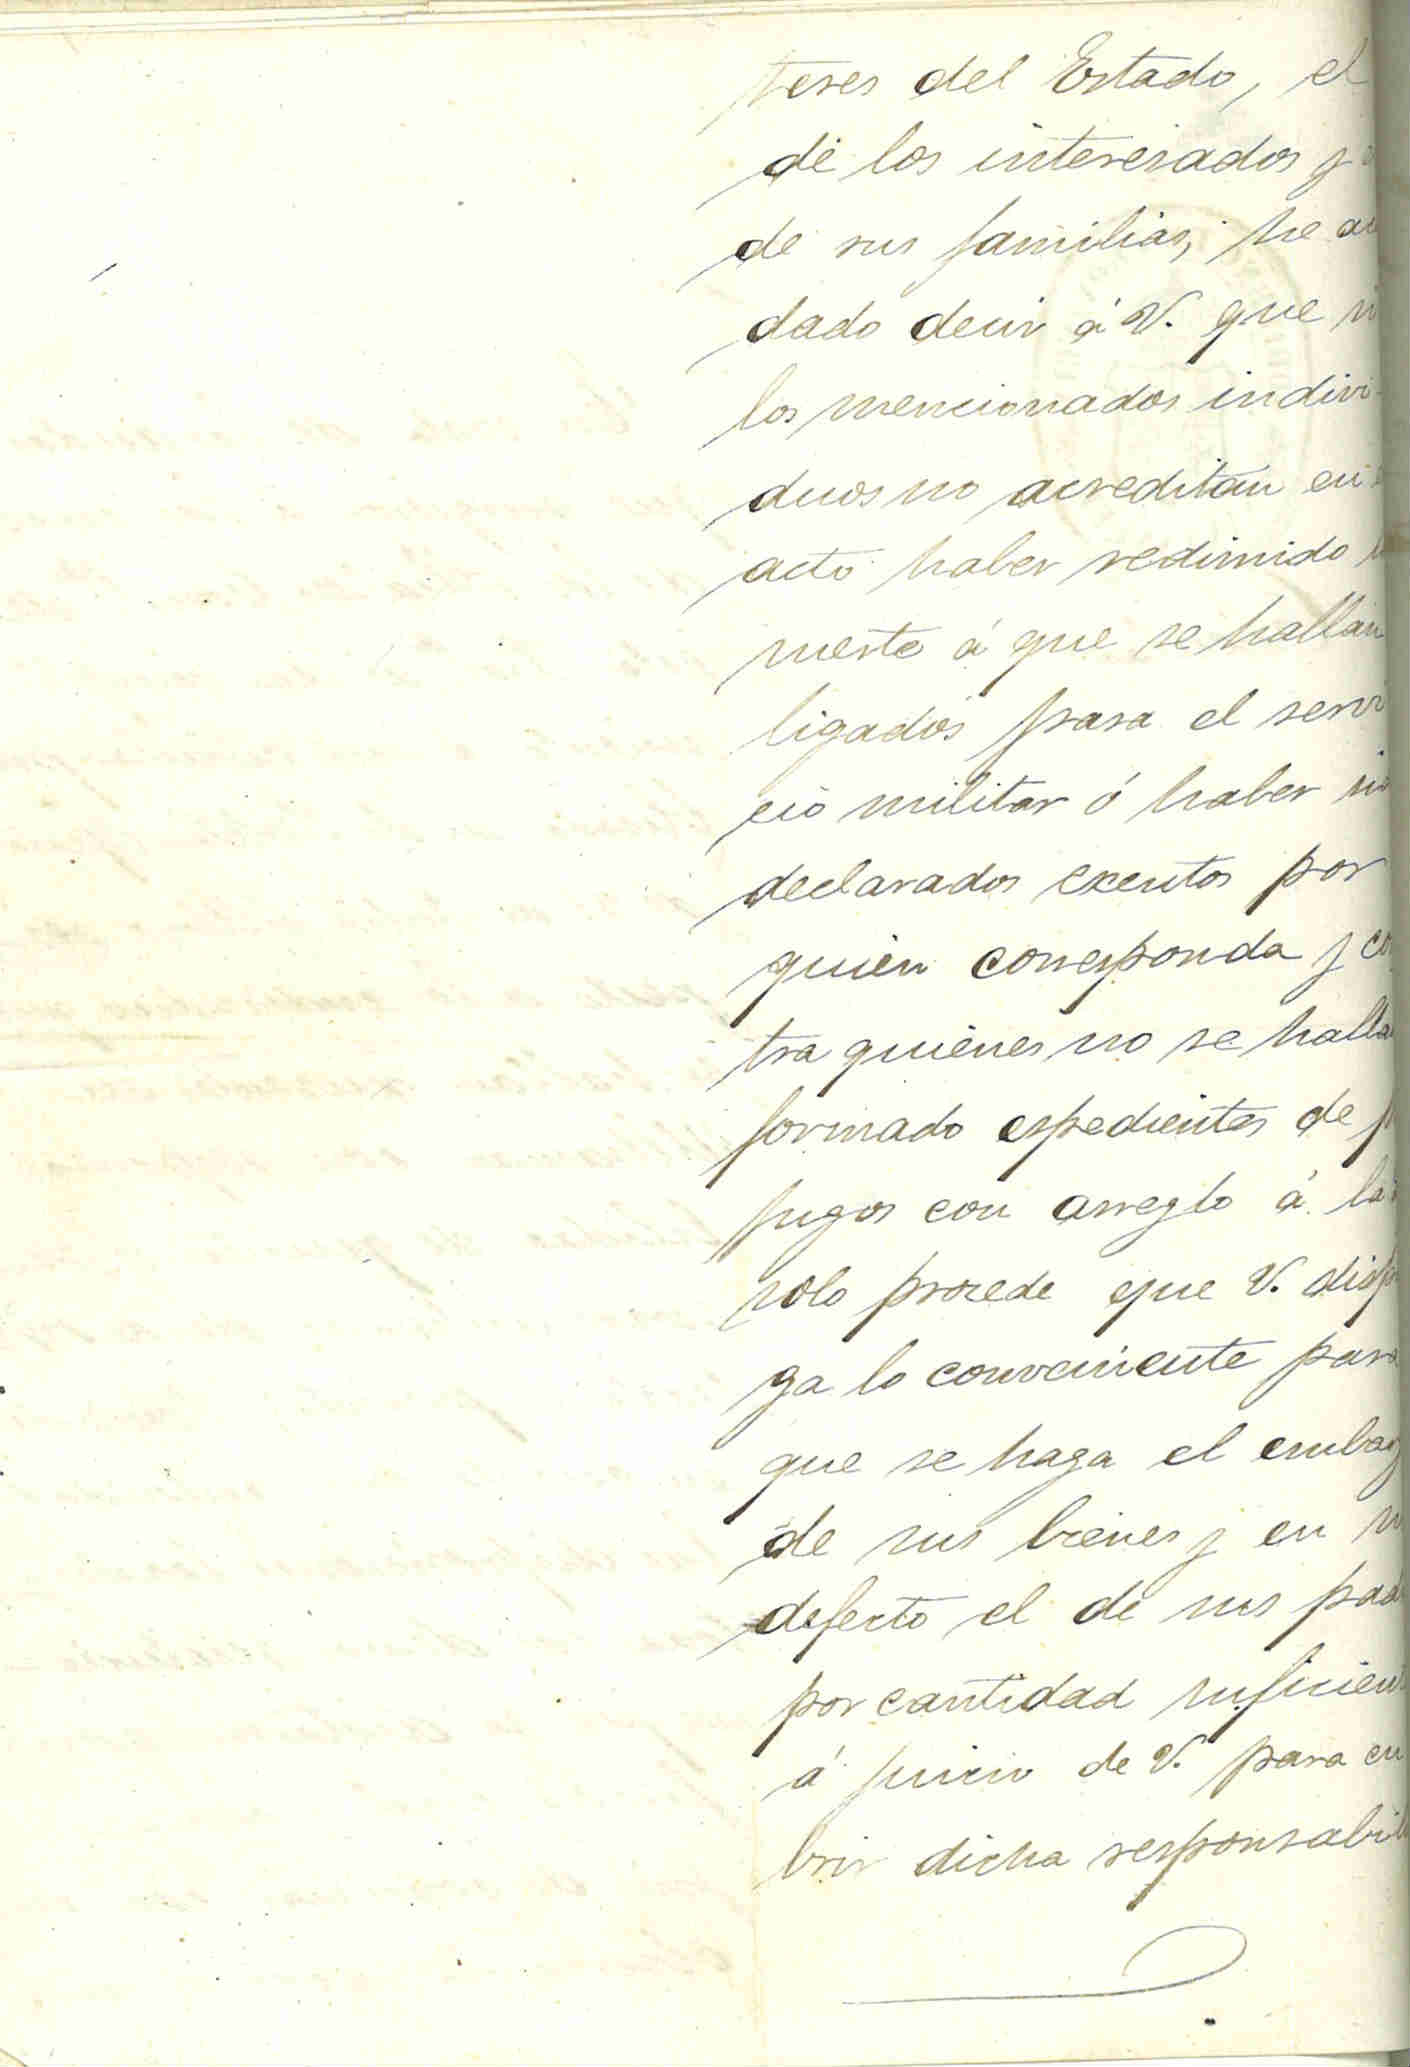 teres del Estado, el
de los interesados y
de sus familias, he
dado decir á V. que si
los mencionados indivi-
duos no acreditan en
acto haber redimido
suerte á que se hallan
ligados para el servi
cio militar ó haber
declarados exentos por
quien corresponda y
tra quienes no se halla
formado espedientes de
fugos con arreglo á la
solo procede que V. disp
ga lo conveniente para
que se haga el embar
de sus bienes y en
defecto el de sus pad
por cantidad suficient
á juicio de V. para cu
brir dicha responsabil